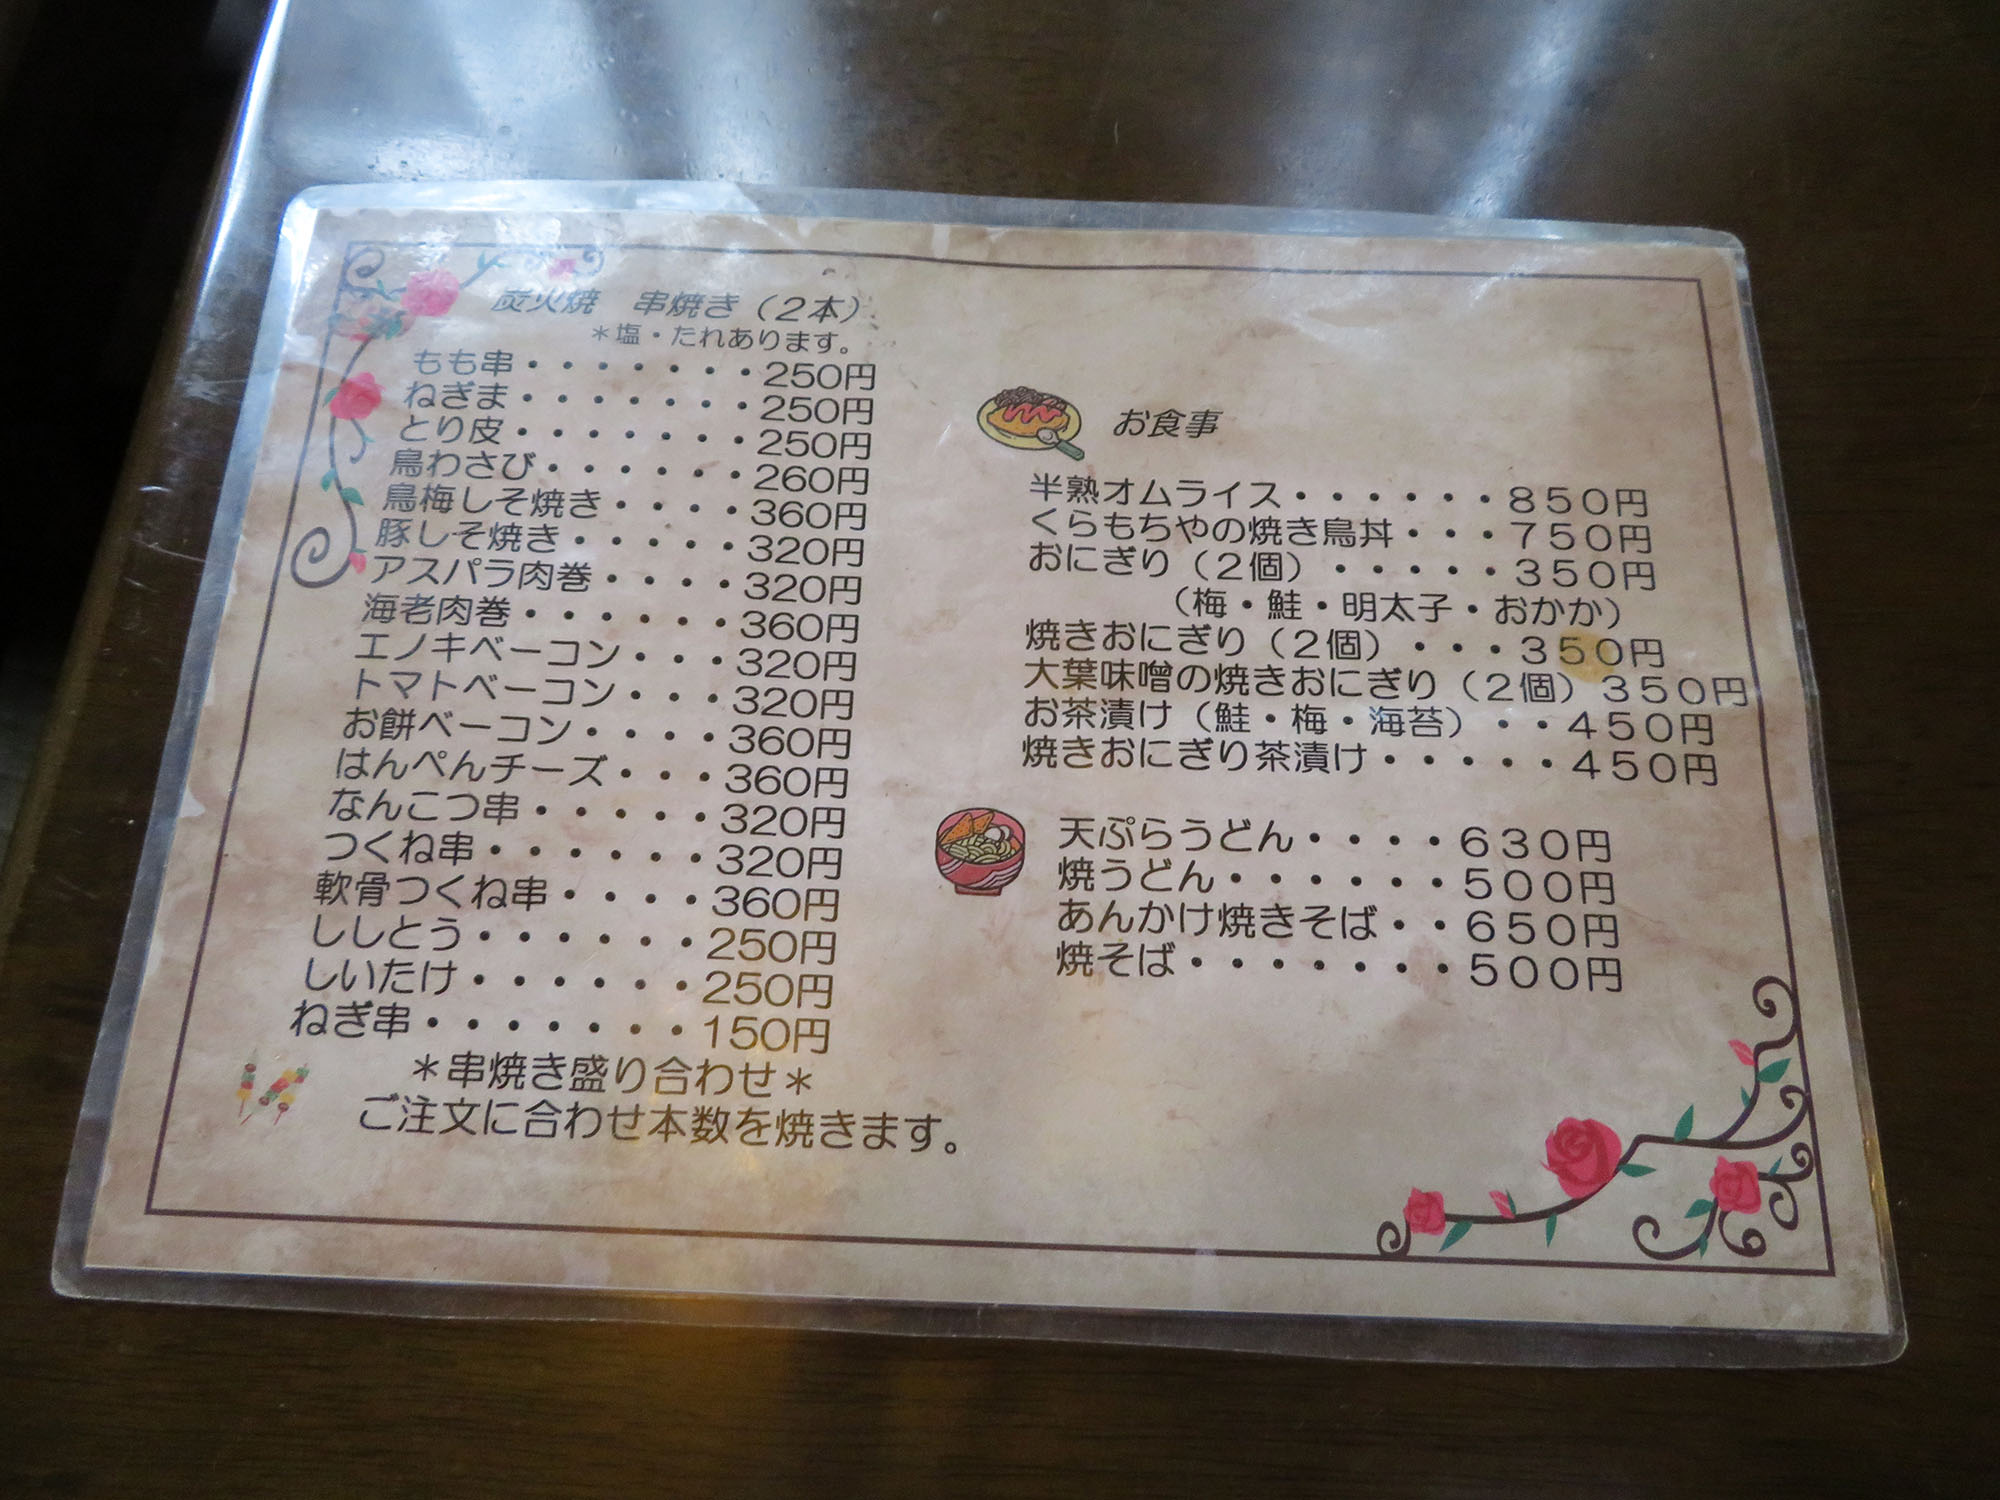 炭火焼　串焼き（２本）
＊塩・たれあります。
もも串・・・・・・・250円
ねぎま・・・・・・・250円
とり皮・・・・・・・250円
鳥わさび・・・・・・260円
鳥梅しそ焼き・・・・360円
豚しそ焼き・・・・・320円
アスパラ肉巻・・・・320円
海老肉巻・・・・・・360円
エノキベーコン・・・320円
トマトベーコン・・・320円
お餅ベーコン・・・・360円
はんぺんチーズ・・・360円
なんこつ串・・・・・320円
つくね串・・・・・・320円
軟骨つくね串・・・・360円
ししとう・・・・・・250円
しいたけ・・・・・・250円
ねぎ串・・・・・・・150円
＊串焼き盛り合わせ＊
ご注文に合わせ本数を焼きます。
お食事
半熟オムライス・・・・・・８５０円
くらもちやの焼き鳥丼・・・７５０円
おにぎり（２個）・・・・・３５０円
（梅・鮭・明太子・おかか）
焼きおにぎり（２個）・・・３５０円
大葉味噌の焼きおにぎり（２個）３５０円
お茶漬け（鮭・梅・海苔）・・４５０円
焼きおにぎり茶漬け・・・・・４５０円
天ぷらうどん・・・・６３０円
焼うどん・・・・・・５００円
あんかけ焼きそば・・６５０円
焼そば・・・・・・・５００円